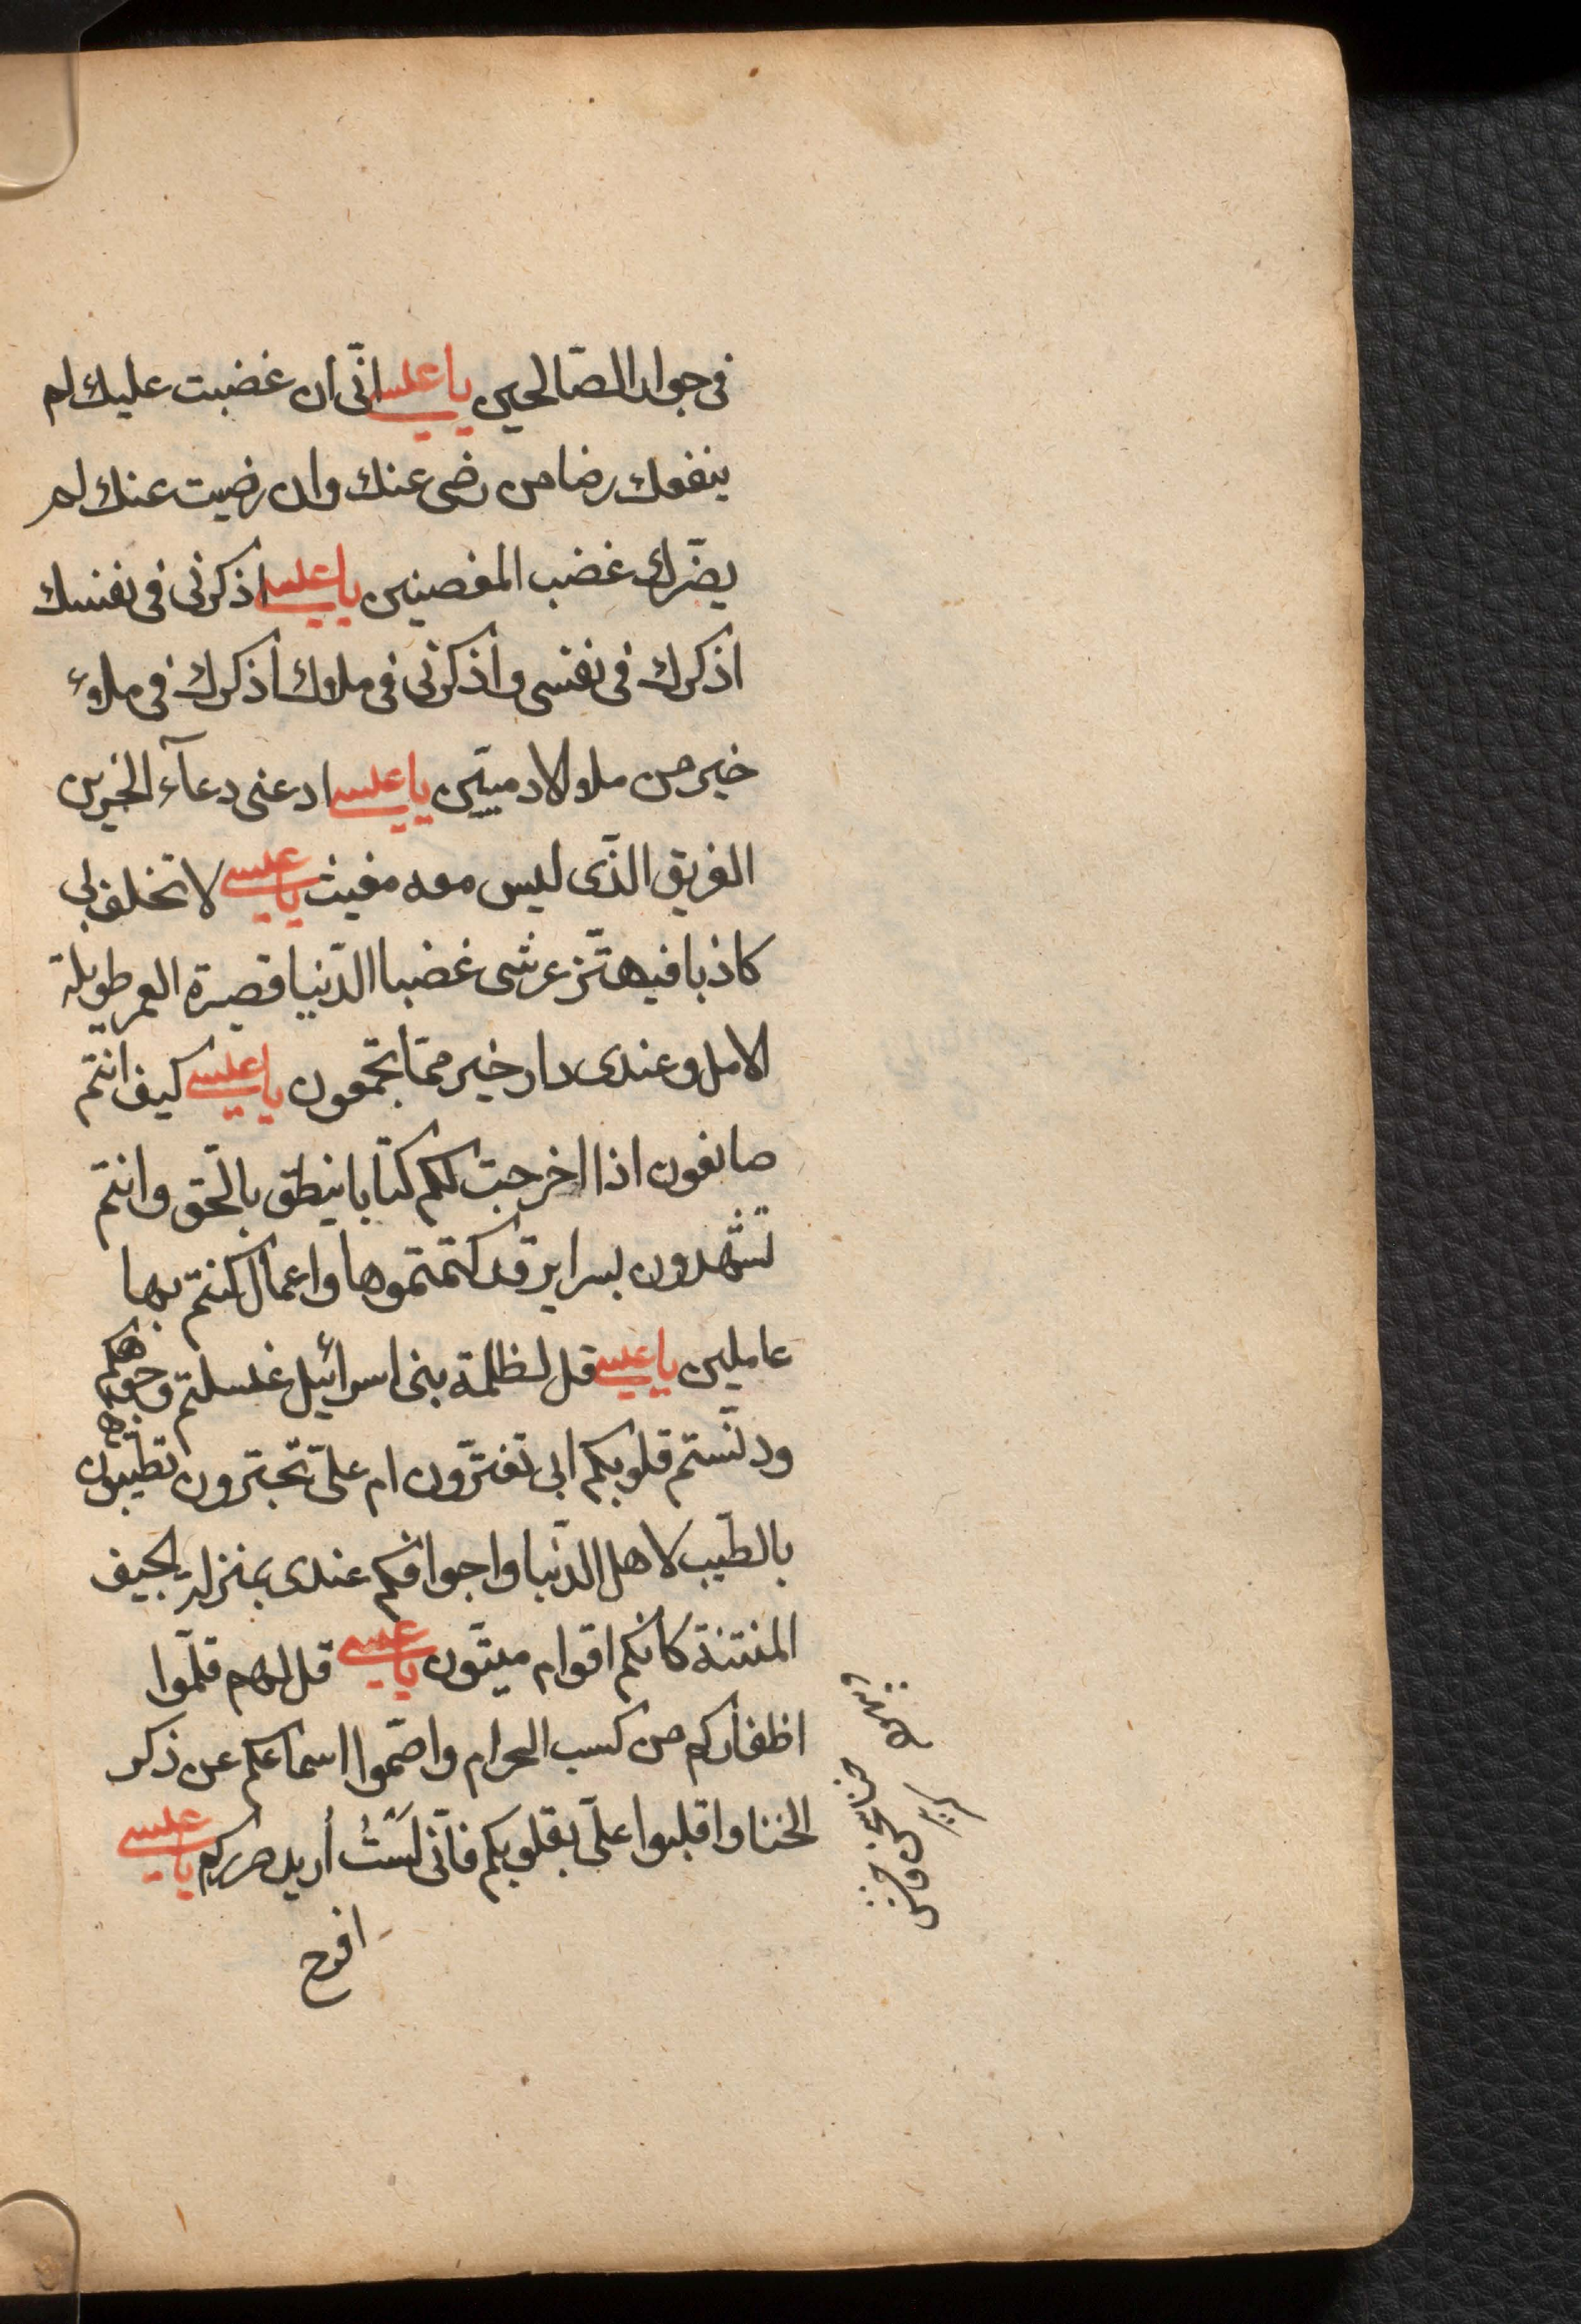 فى جوار الصّالحين يا عيسى انّى ان غضبت عليك لم
ينفعك رضا من رضى عنك وان رضيت عنك لم
يضّرك غضب المغصنين يا عيسى اذكرنى فى نفسك
اذكرك فى نفسى واذكرنى فى ملاءك اذكرك فى ملاء
خير من ملاء الادميّين يا عيسى ادعنى دعآء الحزين
الغريق الذّى ليس معه مغيث يا عيسى لا تحلف بى
كاذبا فيهتّز عرشى غضبا الدّنيا قصيرة العمر طويلة
الامل وعندى دار خير ممّا تجمعون يا عيسى كيف انتم
صانعون اذا اخرجت لكم كتابا ينطق بالحّق وانتم
تشهدون بسراير قد كتمتموها واعمال كنتم بها
عاملين يا عيسى قل لظلمة بنى اسرائيل غسلتم وجوهكم
ودنّستم قلوبكم ابى تغترّون ام علىّ تجترون تطيبون
بالطّيب لاهل الدّنيا واجوافكم عندى بمنزلة الجيف
المنتنة كانكم اقوام ميتّون يا عيسى قل لهم قلّموا
اظفاركم من كسب الحرام واصّموا اسماعكم عن ذكر
الخنا واقبلوا علىّ بقلوبكم فانّى لَسْتُ أريد صرركم يا عيسى
افرح